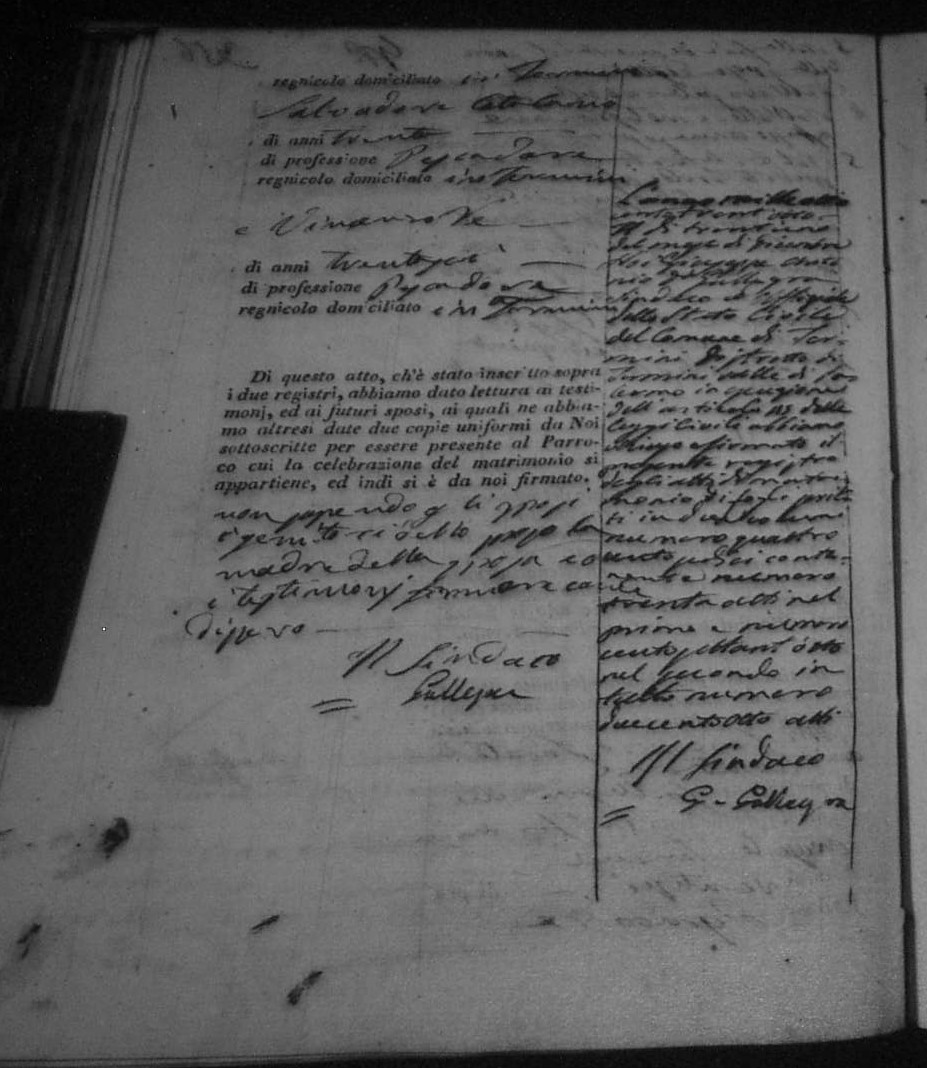 regnicolo domiciliato in Termini
Salvadore Catalano
di anni trenta
di professione Pescadore
regnicolo domiciliato in Termini
e Vincenzo Re
di anni trentasei
di professione Pescadore
regnicolo domiciliato in Termini
Di questo atto, ch'è stato inscritto sopra
i due registri, abbiamo dato lettura ai testi-
monj, ed ai futuri sposi, ai quali ne abbia-
mo altresì date due copie uniformi da Noi
sottoscritte per essere presente al Parro-
co cui la celebrazione del matrimonio si
appartiene, ed indi si è da noi firmato.
non sapendo gli sposi
e genitori dello sposo la
madre della sposa
e testimonj firmare come
dissero
Il Sindaco
Gallegra
L'anno mille otto
cento trent'otto
di trentuno
del mese di Dicembre
Noi Giuseppe Anto
nio Gallegra
Sindaco ed Uffiziale
dello Stato Civile
del Comune di Ter-
mini Distretto di
Termini Valle di Pa
lermo in esecuzione
dell'articolo delle
Leggi Civili abbiamo
chiuso e firmato il
presente registro
degli atti di matri
monio di fogli
numero quattro
cento conte-
nente numero
trenta atti nel
primo e numero
cento settant'otto
nel secondo in
tutto numero
duecentootto atti
Il Sindaco
G. Gallegra